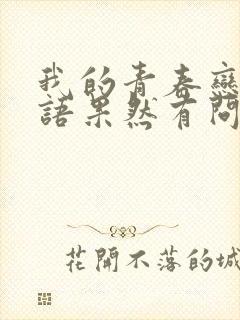 我的青春戀
語果然有問
花開不落的城